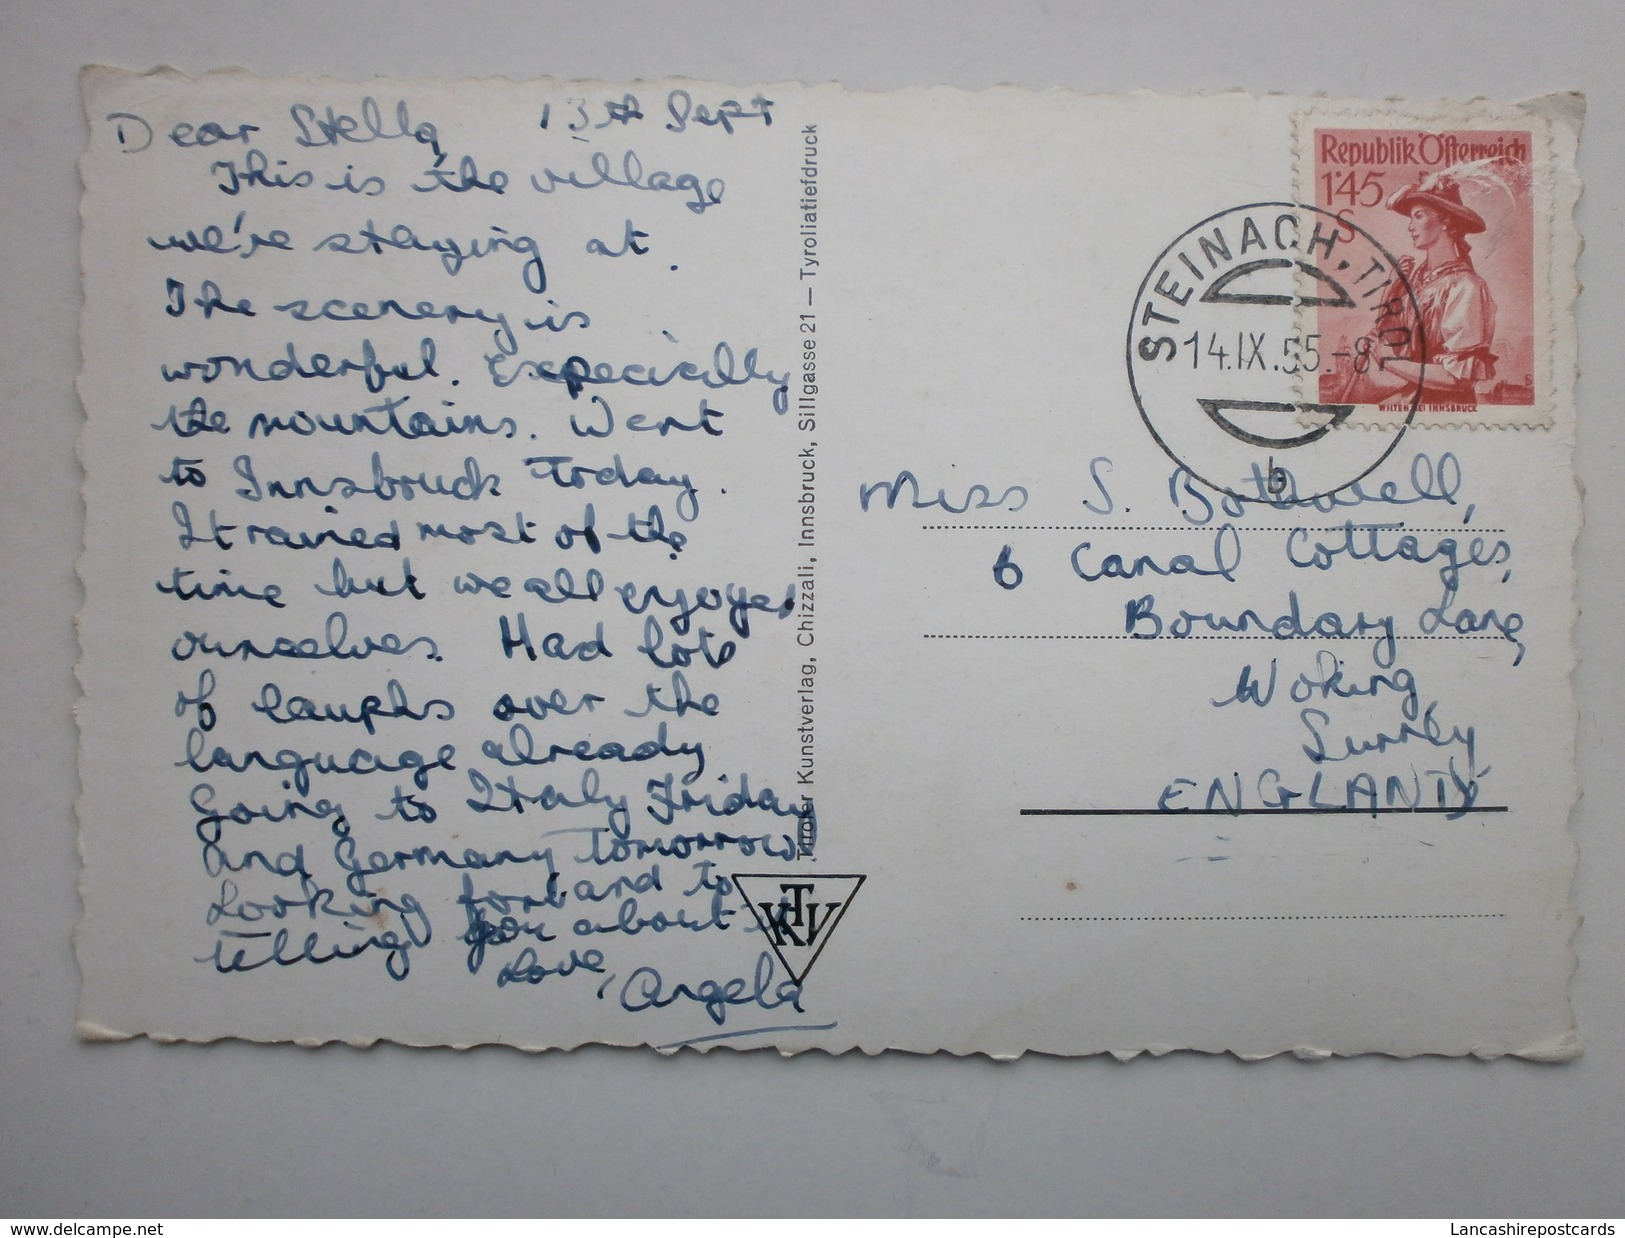 Dear Stella, 13th Sept
This is the village
we're staying at.
The scenery is
wonderful. Especially
the mountains. Went
to Innsbruck today.
It rained most of the
time but we all enjoyed
ourselves. Had lots
of laughs over the
language already
Going to Italy Friday
and Germany tomorrow
Looking forward to
telling you about it
Love, Angela
Tiroler Kunstverlag, Chizzali, Innsbruck, Sillgasse 21 — Tyroliatiefdruck
KTV
Republik Österreich
1'45
S
WILTEN BEI INNSBRUCK
STEINACH, TIROL
14.IX.55.-8
b
Miss S. Bothwell,
6 Canal Cottages,
Boundary Lane,
Woking,
Surrey
ENGLAND
www.delcampe.net
Lancashirepostcards